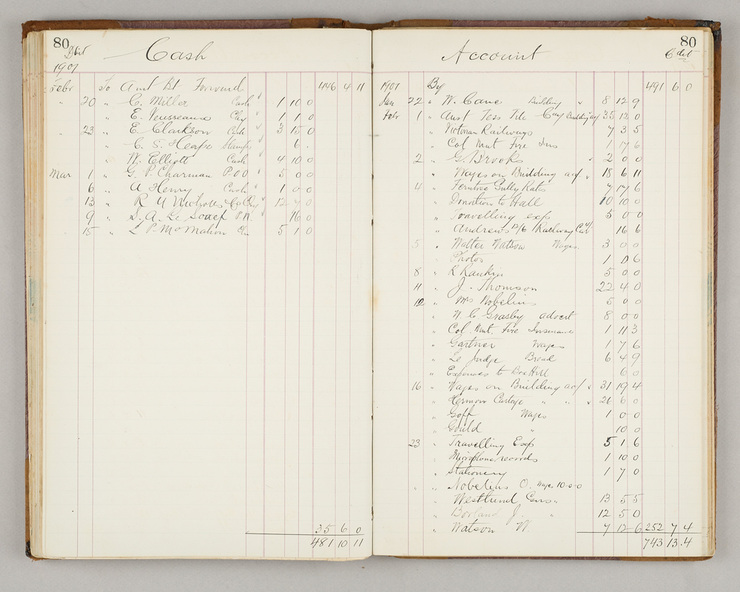 80
Dbt
Cash
1907
Febr To Amt Bt Forward 446 4 11
" 20 " C. Milla Cash 1 10 0
" E. Cash 1 1 0
" 23 " E Clarkson Cash 3 15 0
" C. S. Heape Stamps 6
" W. Elliott Cash 4 10 0
Mar 1 " G. V. Charman P.O.O 5 0 0
6 " A Henry Cash 1 0 0
13 " R U Nicholls
9 " S. A. Le Souef P.N 16 0
15 " L P McMahon 5 1 0
35 6 0
481 10 11
80
Account
Cdit
1907 By 491 6 0
Jan 22 " W. Cane Building " 8 12 9
Febr 1 " Aust Tess Tile Coy Building a/c 35 12 0
" Victorian Railways 7 3 5
" Col Mut Fire Ins 1 17 6
2 " G. Brooks " 2 0 0
" Wages on Building a/c " 18 6 11
4 " Ferntree Gully Rates 7 17 6
" Donation to Hall 10 10 0
" Travelling exp 5 0 0
" Andrews Railway 16 6
5 " Walter Watson Wages 3 0 0
" Photos 1 0 6
8 " R Rankin 5 0 0
11 " J. Thomson 22 4 0
12 " Mrs Nobelius 5 0 0
" W. C. Grasby advert 8 0 0
" Col Mut Fire Insurance 1 11 3
" Gartner Wages 1 7 6
" Le Judge Bread 6 4 9
" Expenses to Box Hill 6 0
16 " Wages on Building a/c " 31 19 4
" Hermon Cartage " " " 26 6 0
" Goff Wages 1 0 0
" Gould " 10 0
23 " Travelling Exp 5 1 6
" records 1 10 0
" Stationery 1 7 0
" " Nobelius O. Wages 10 0 0
" Westlund 13 5 5
" J " 12 5 0
" Watson N 7 12 6 252 7 4
743 13 4